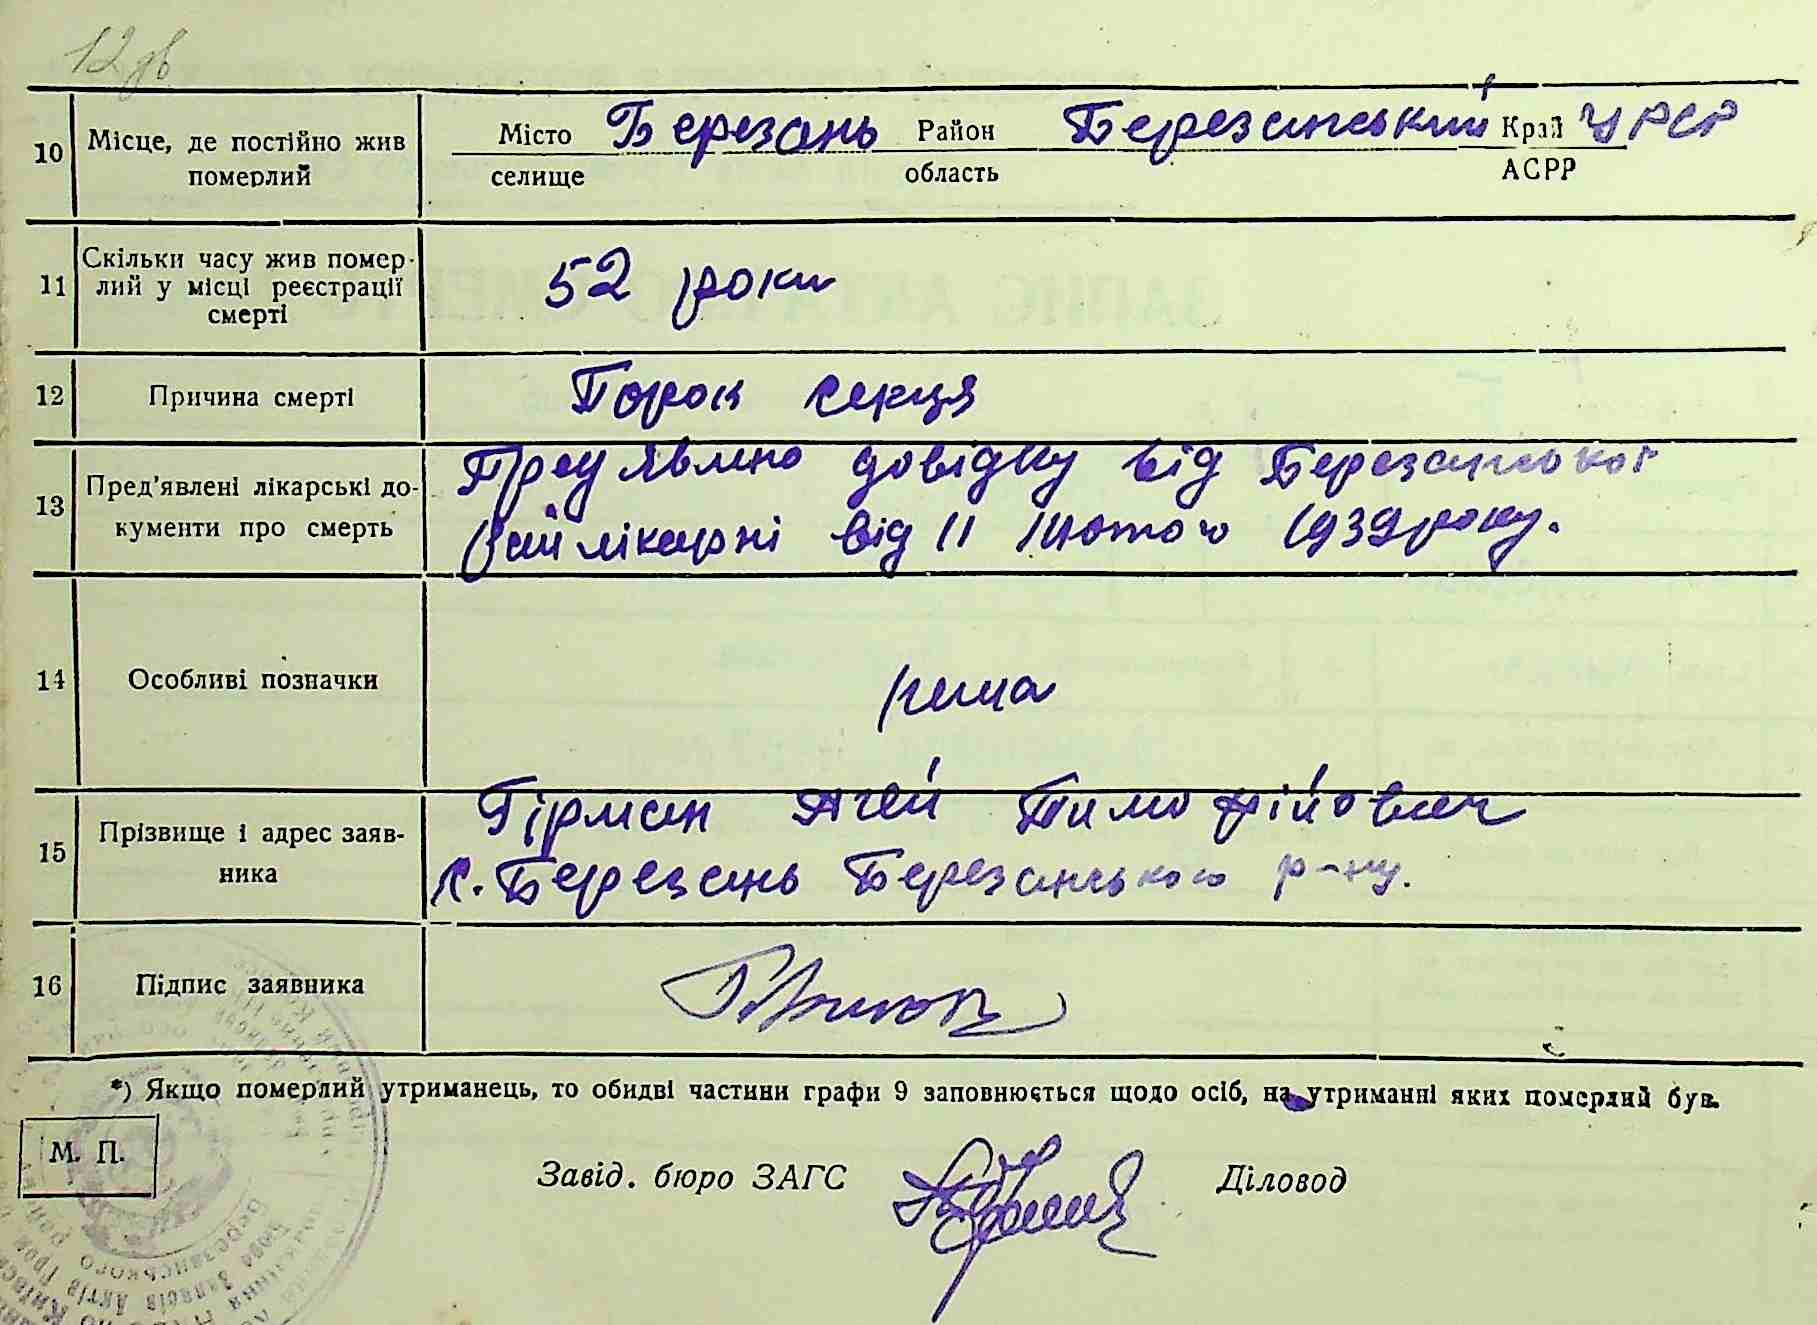 12 зв
10 Місце, де постійно жив померлий Місто селище Березань Район область Березанський Край АСРР УРСР
11 Скільки часу жив помер-
лий у місці реєстрації
смерті 52 роки
12 Причина смерті Порок серця
13 Пред'явлені лікарські до-
кументи про смерть Пред'явлено довідку від Березанської
Рай лікарні від 11 лютого 1939 року.
14 Особливі позначки нема
15 Прізвище і адрес заяв-
ника Гірман Агей Тимофійович
с. Березань Березанського р-ну.
16 Підпис заявника
*) Якщо померлий утриманець, то обидві частини графи 9 заповнюється щодо осіб, на утриманні яких померлий був.
М. П.
Завід. бюро ЗАГС Діловод